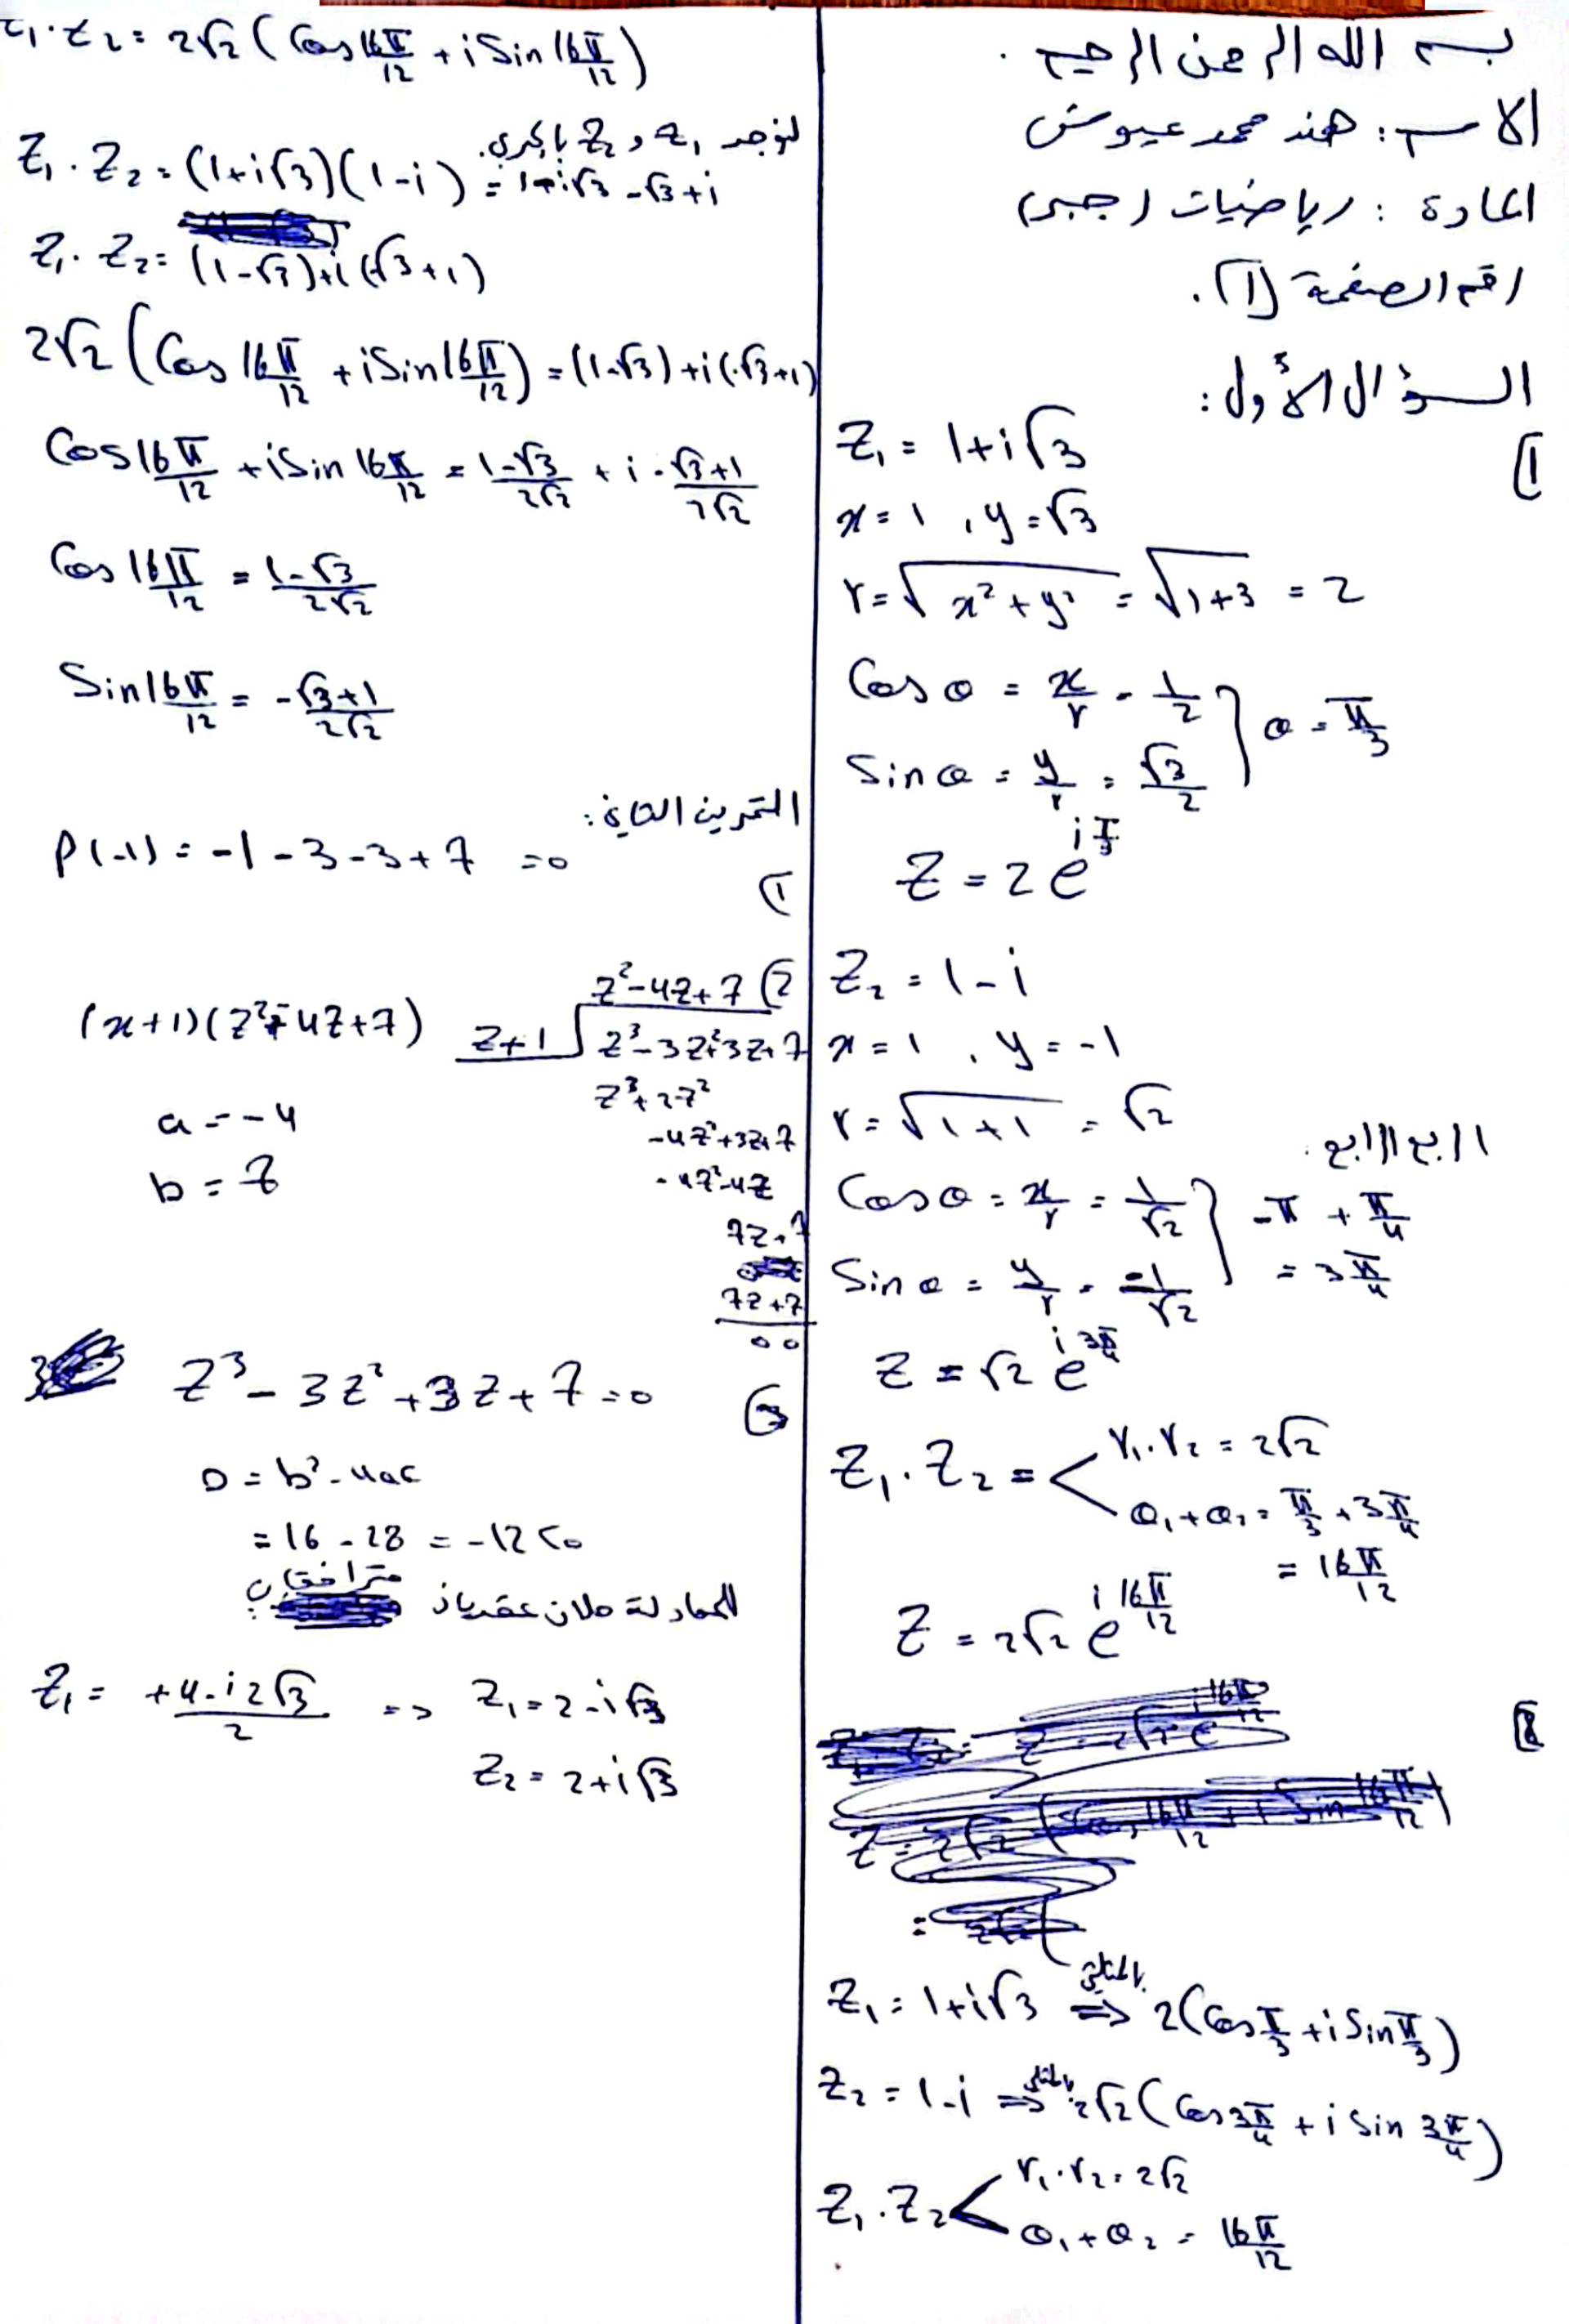 بسم الله الرحمن الرحيم .
الاسم : هند محمد عيوش
المادة : رياضيات (جبر)
رقم الصفحة (1).
السؤال الأول :
1)
Z₁ = 1+i√3
x = 1 , y = √3
r = √(x²+y²) = √(1+3) = 2
Cos θ = x/r = 1/2
Sin θ = y/r = √3/2
θ = π/3
Z = 2 e^(iπ/3)
Z₂ = 1 - i
x = 1 , y = -1
r = √(1+1) = √2
الربع الرابع .
Cos θ = x/r = 1/√2
Sin θ = y/r = -1/√2
-π + π/4
= 3π/4
Z = √2 e^(i3π/4)
Z₁ . Z₂ =
r₁ . r₂ = 2√2
θ₁ + θ₂ = π/3 + 3π/4
= 16π/12
Z = 2√2 e^(i16π/12)
2)
Z₁ = 1+i√3 ⇒ 2(Cos π/3 + i Sin π/3)
Z₂ = 1-i ⇒ 2√2 (Cos 3π/4 + i Sin 3π/4)
Z₁ . Z₂
r₁ . r₂ = 2√2
θ₁ + θ₂ = 16π/12
Z₁ . Z₂ = 2√2 (Cos 16π/12 + i Sin 16π/12)
لنوجد Z₁ و Z₂ بالجبري .
Z₁ . Z₂ = (1+i√3)(1-i) = 1+i√3 -√3+i
Z₁ . Z₂ = (1-√3)+i(√3+1)
2√2 (Cos 16π/12 + i Sin 16π/12) = (1-√3)+i(-√3+1)
Cos 16π/12 + i Sin 16π/12 = 1-√3/2√2 + i -√3+1/2√2
Cos 16π/12 = 1-√3/2√2
Sin 16π/12 = -√3+1/2√2
التمرين الثاني :
1)
P(-1) = -1 - 3 - 3 + 7 = 0
2)
Z²-4Z+7
Z+1 Z³-3Z²+3Z+7
Z³+Z²
-4Z²+3Z+7
-4Z²-4Z
7Z+7
7Z+7
0 0
(x+1)(Z²-4Z+7)
a = -4
b = 7
3)
Z³ - 3Z² + 3Z + 7 = 0
D = b² - 4ac
= 16 - 28 = -12 < 0
للمعادلة حلان عقديان مترافقان
Z₁ = +4-i2√3/2 => Z₁ = 2-i√3
Z₂ = 2+i√3